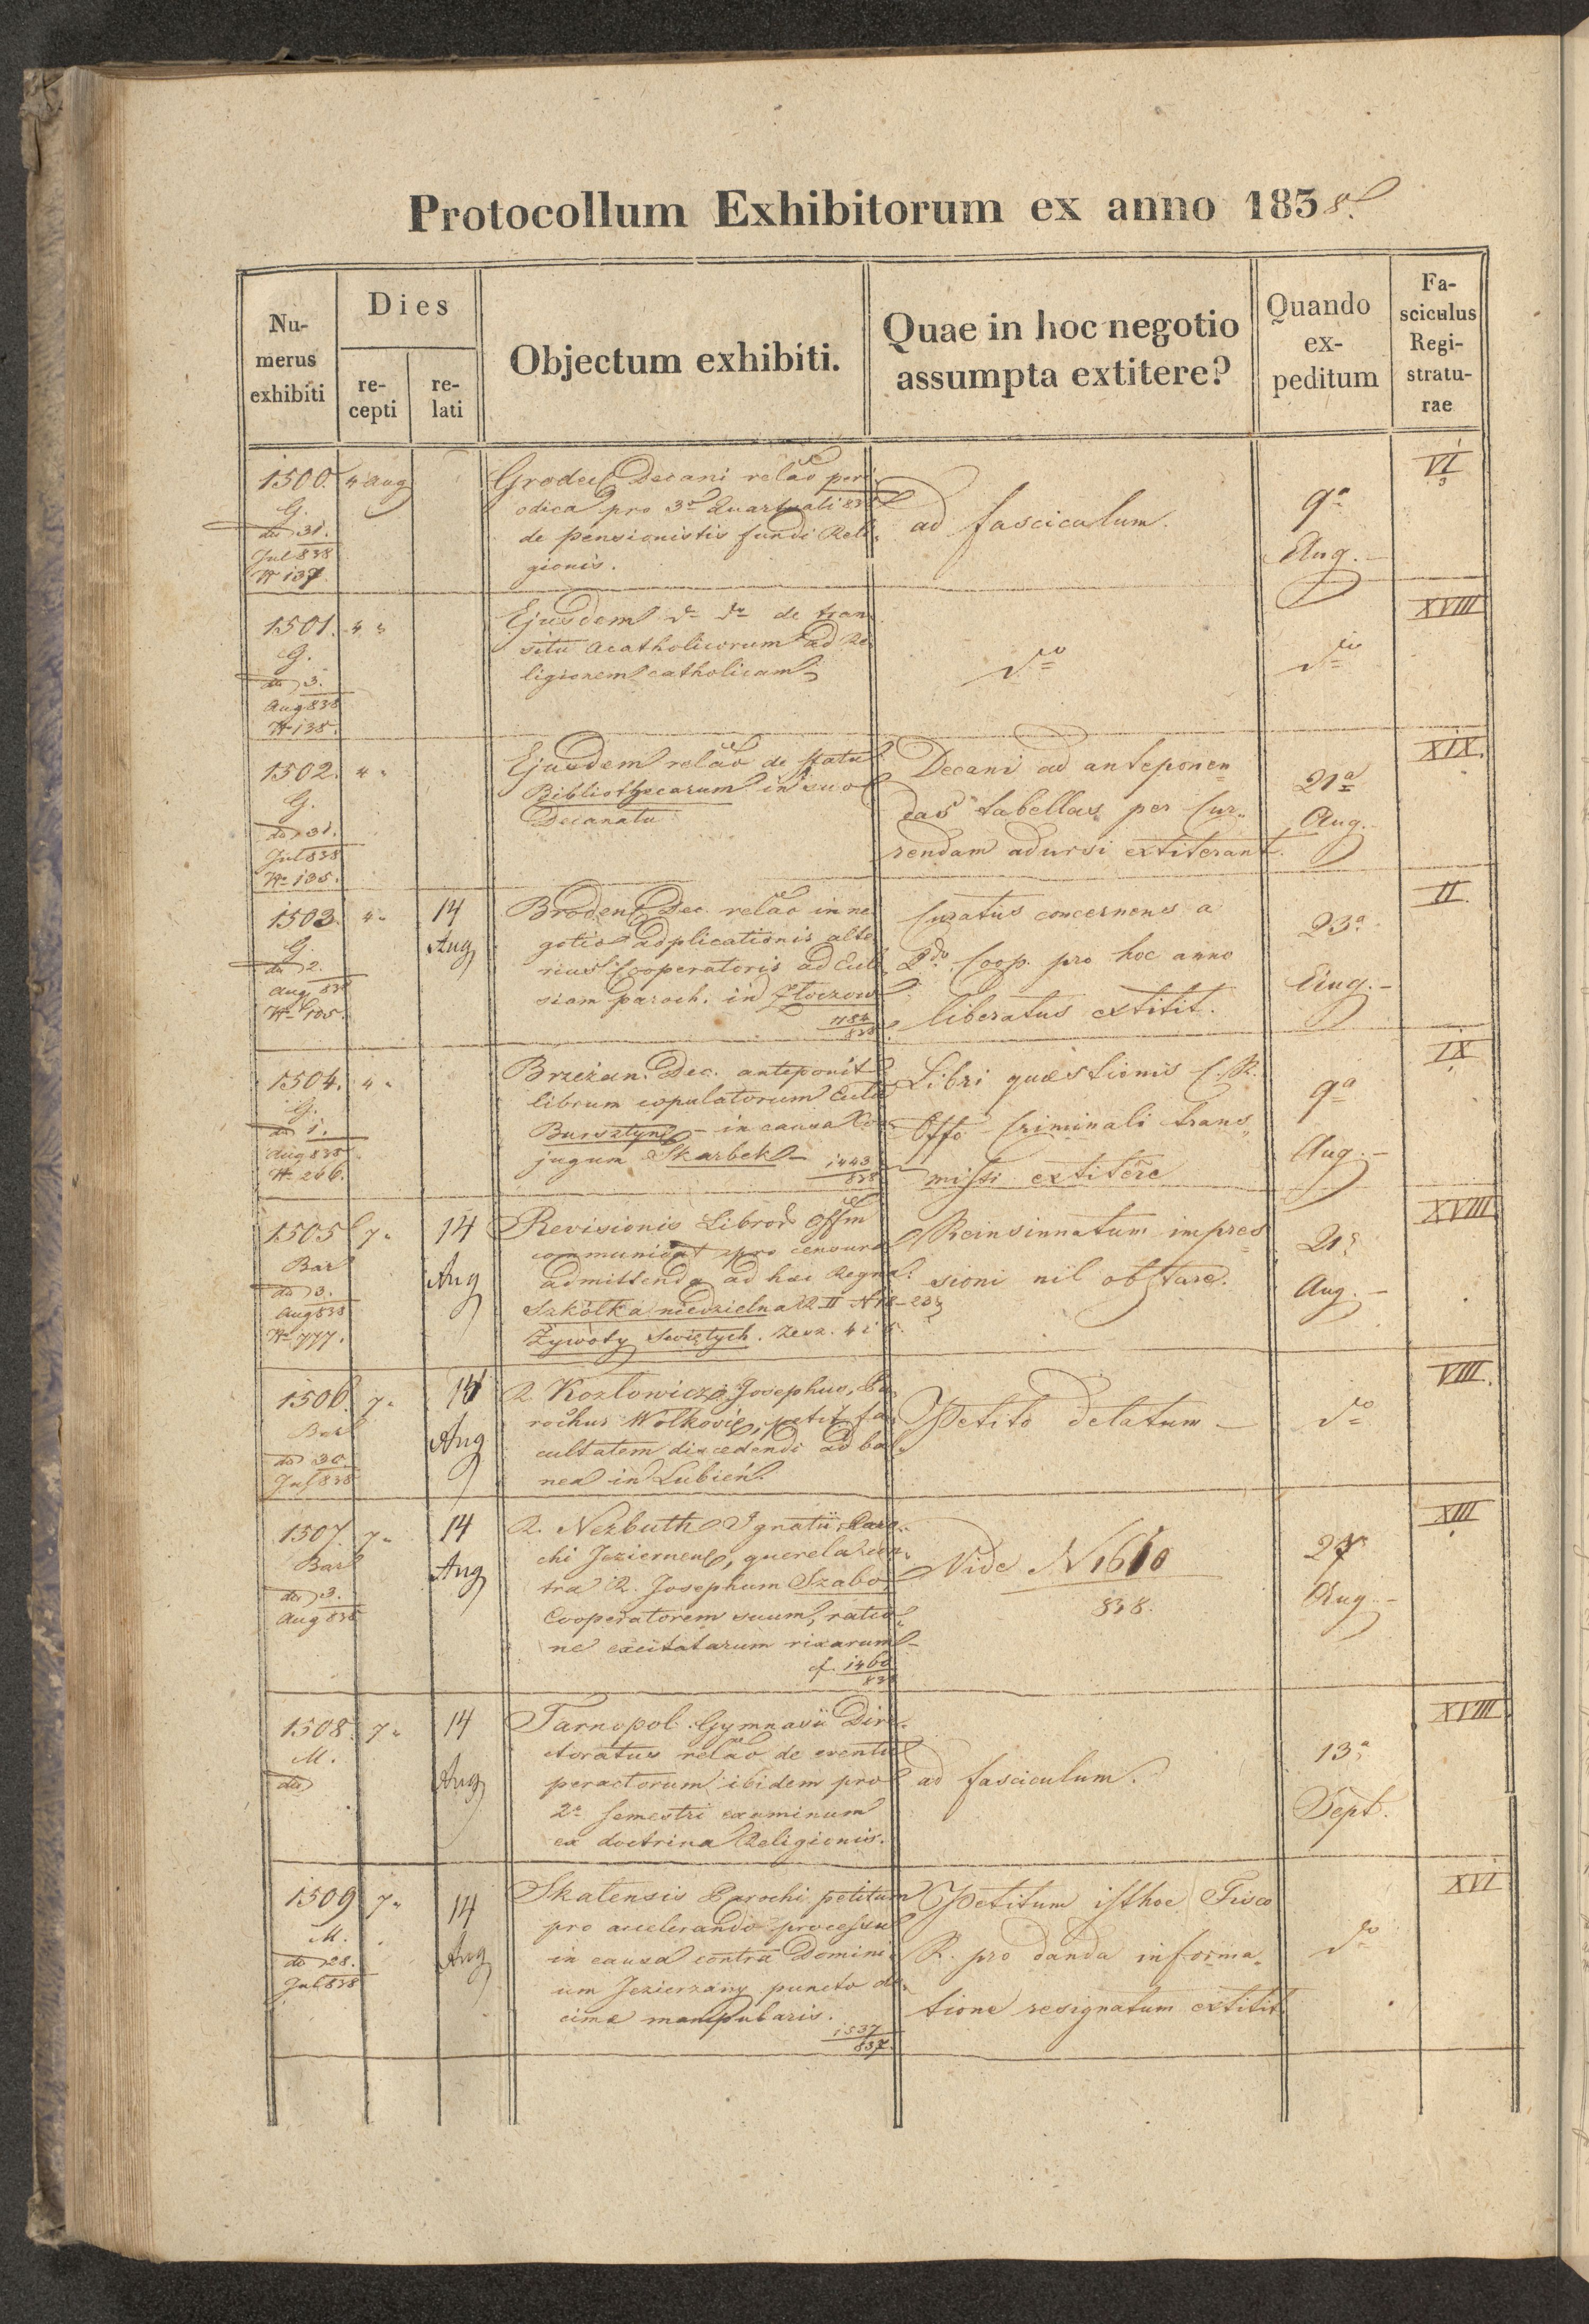 Protocollum Exhibitorum ex anno 1838.
Nu-
merus
exhibiti
Dies
re-
cepti
re-
lati
Objectum exhibiti.
Quae in hoc negotio
assumpta extitere?
Quando
ex-
peditum
Fa-
sciculus
Regi-
stratu-
rae
1500.
G.
dto 31.
Jul 838
N 137.
4 Aug
Grodec Decani relão peri
odica pro 3o Quartuali 838
de pensionistis fundi Reli-
gionis.
ad fasciculum.
9a
Aug.
VI
1501.
G.
dto 3.
Aug 838
N 138.
4 "
Ejusdem do do de tran
situ acatholicorum ad Re
ligionem catholicam
do
do
XVIII
1502.
G.
dto 31.
Jul 838
N 135.
4 "
Ejusdem relão de statu
Bibliothecarum in suo
Decanatu
Decani ad anteponen
das tabellas per Cur„
rendam adursi extiterant.
21a
Aug.
XIX.
1503.
G.
dto 2.
Aug 838
N 105.
4 "
14
Aug
Broden Dec. relão in ne
gotio adplicationis alte
rius Cooperatoris ad Eccle
siam paroch. in Złoczow
1184
838
Curatus concernens a
2do Coop. pro hoc anno
liberatus extitit.
23a
Aug.
II.
1504.
G.
dto 1.
Aug 838
N 266.
4 "
Brzeżan. Dec. anteponit
librum copulatorum Eccle
Bursztyn – in causa Con
jugum Skarbek –
1443
838
Libri quæstionis C. R.
Offo Criminali trans„
missi extitere
9a
Aug.
IX
1505
Bar
dto 3.
Aug 838
N 777.
7 "
14
Aug
Revisionis Libror Offm
communicat pro censura
admittenda ad hæc Regna.
Szkółka niedzielna R II N 18–23,
Żywoty Swiętych. Zesz. 4 i 5.
Reinsinnatum impres
sioni nil obstare.
21a
Aug.
XVIII
1506.
Bar
dto 30.
Jul 838
7 "
14
Aug
R. Kozlowicz Josephus, Pa
rochus Wolkoviæ, petit fa
cultatem discedendi ad bal
nea in Lubień.
Petito delatum –
do
VIII.
1507.
Bar
dto 3.
Aug 838
7 "
14
Aug
R. Nezbuth Ignatii, Paro„
chi Jeziernens, querela con„
tra R. Josephum Szabo
Cooperatorem suum, ratio„
ne excitatarum rixarum –
cf. 1460
838
Vide N 1610
838.
27
Aug.
XIII
1508.
M.
dto
7 "
14
Aug
Tarnopol. Gymnasii Dire
ctoratus relão de eventu
peractorum ibidem pro
2o semestri examinum
ex doctrina Religionis.
ad fasciculum.
13a
Sept.
XVIII
1509
M.
dto 28.
Jul 838
7 "
14
Aug
Skalensis Parochi petitum
pro accelerando processu
in causa contra Domini
um Jezierzany puncto de
cimæ manipularis.
1537
837
Petitum isthoc Fisco
R. pro danda informa„
tione resignatum extitit
do
XVI